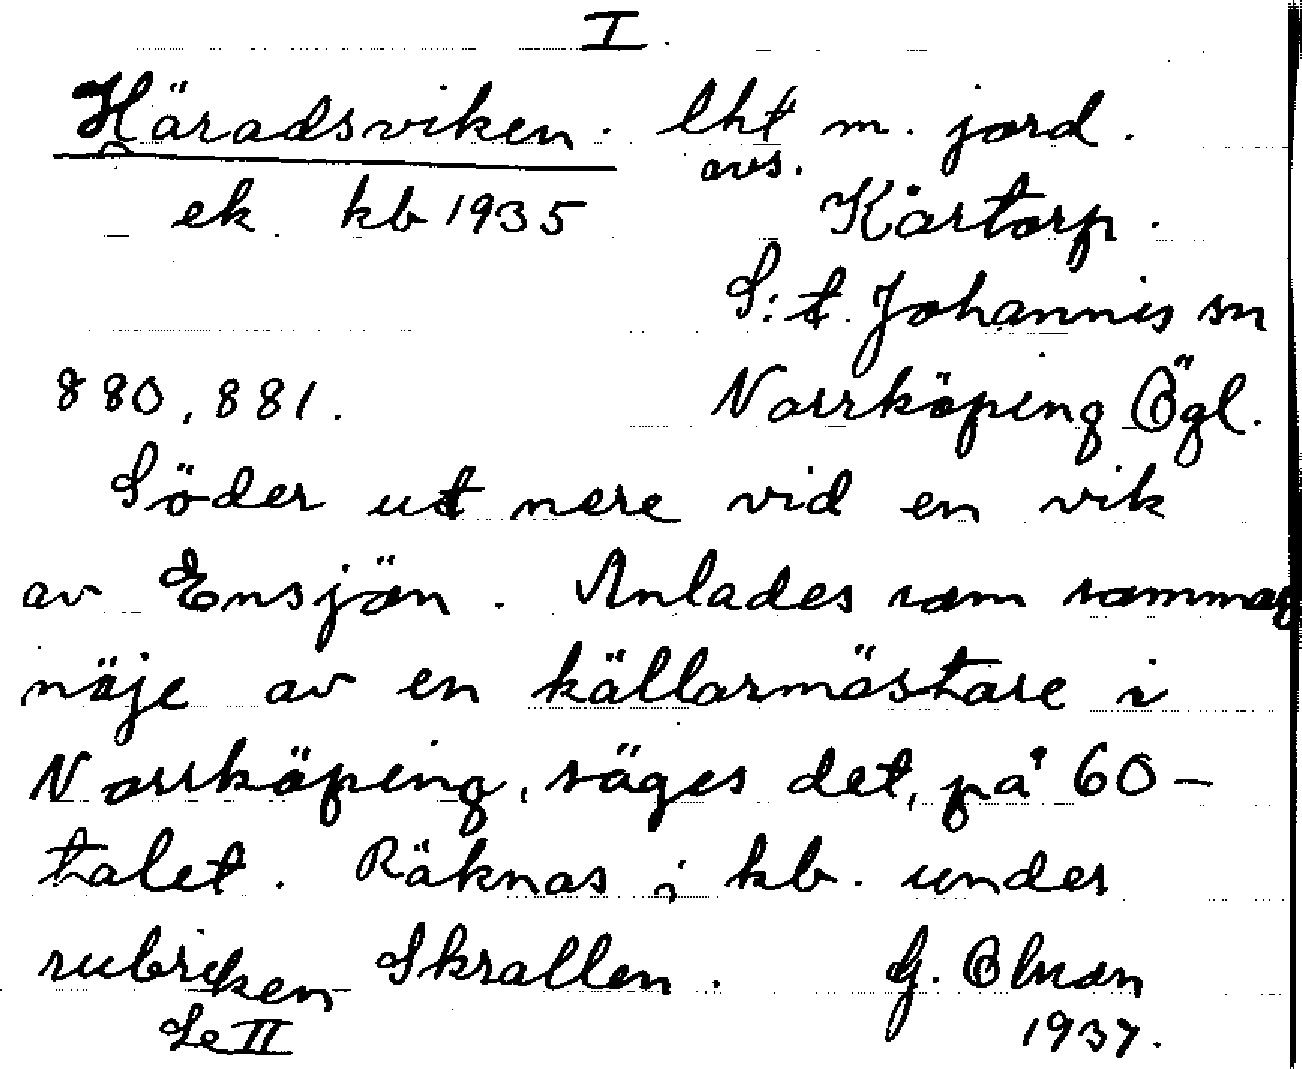 I.
Häradsviken. lht m. jord.
avs.
ek kb 1935 Kårtorp.
S:t Johannis sn
880, 881. Norrköping Ögl.
Söder ut nere vid en vik
av Ensjön. Anlades som sommar
nöje av en källarmästare i
Norrköping, säges det, på 60-
talet. Räknas i kb. under
rubriken Skrallen. G. Olson
Se II 1937.